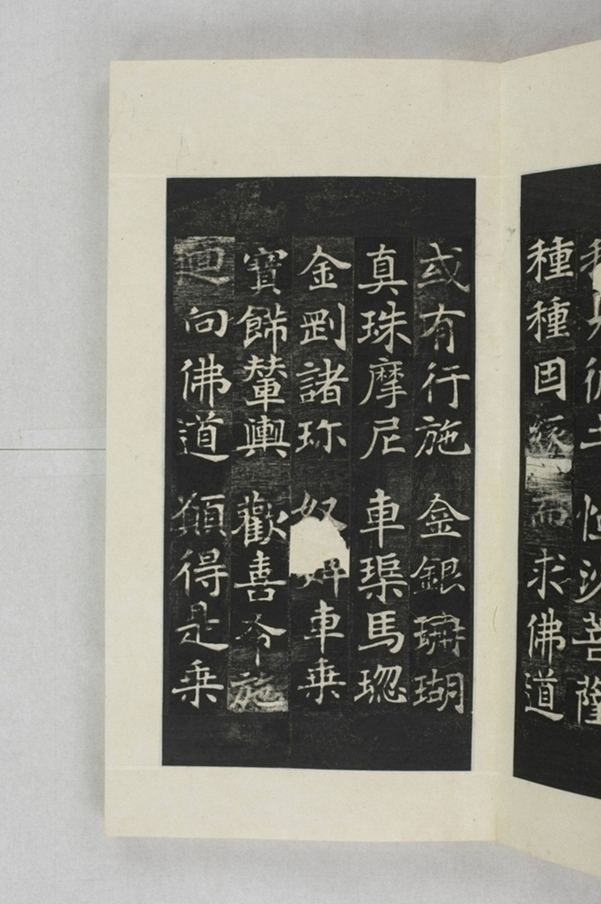 彼土 恒沙菩薩
種種因緣 而求佛道
或有行施 金銀珊瑚
真珠摩尼 車璖馬瑙
金剛諸珎 奴 車乗
寶飾輦輿 歡喜布施
迴向佛道 願得是乗